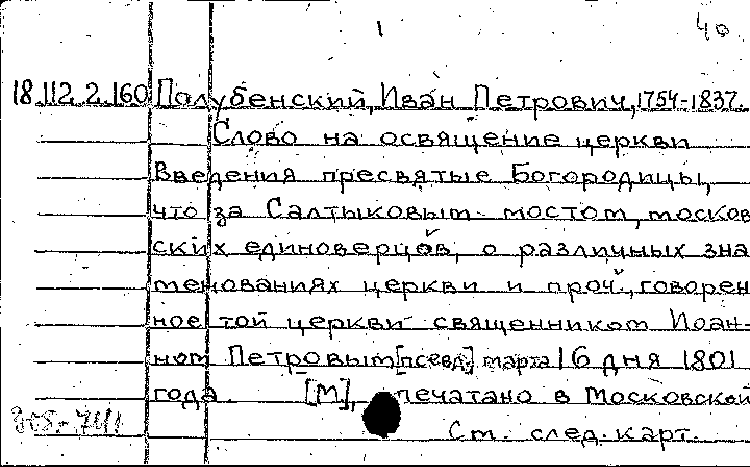 1 40
18.112.2.160 Полубенский, Иван Петрович, 1754-1837.
Слово на освящение церкви
Введения пресвятые Богородицы,
что за Салтыковым мостом, москов
ских единоверцов, о различных зна
менованиях церкви и проч., говорен
ное той церкви священником Иоан-
ном Петровым [псевд.] марта 16 дня 1801
года. [М], печатано в Московской
См. след. карт.